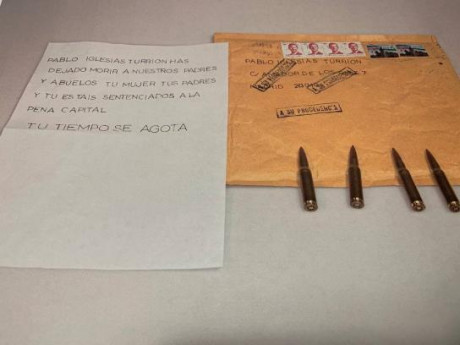 PABLO IGLESIAS TURRION HAS
DEJADO MORIR A NUESTROS PADRES
Y ABUELOS TU MUJER TUS PADRES
Y TU ESTAIS SENTENCIADOS A LA
PENA CAPITAL
TU TIEMPO SE AGOTA
PABLO IGLESIAS TURRION
C/
DE LOS
MADRID